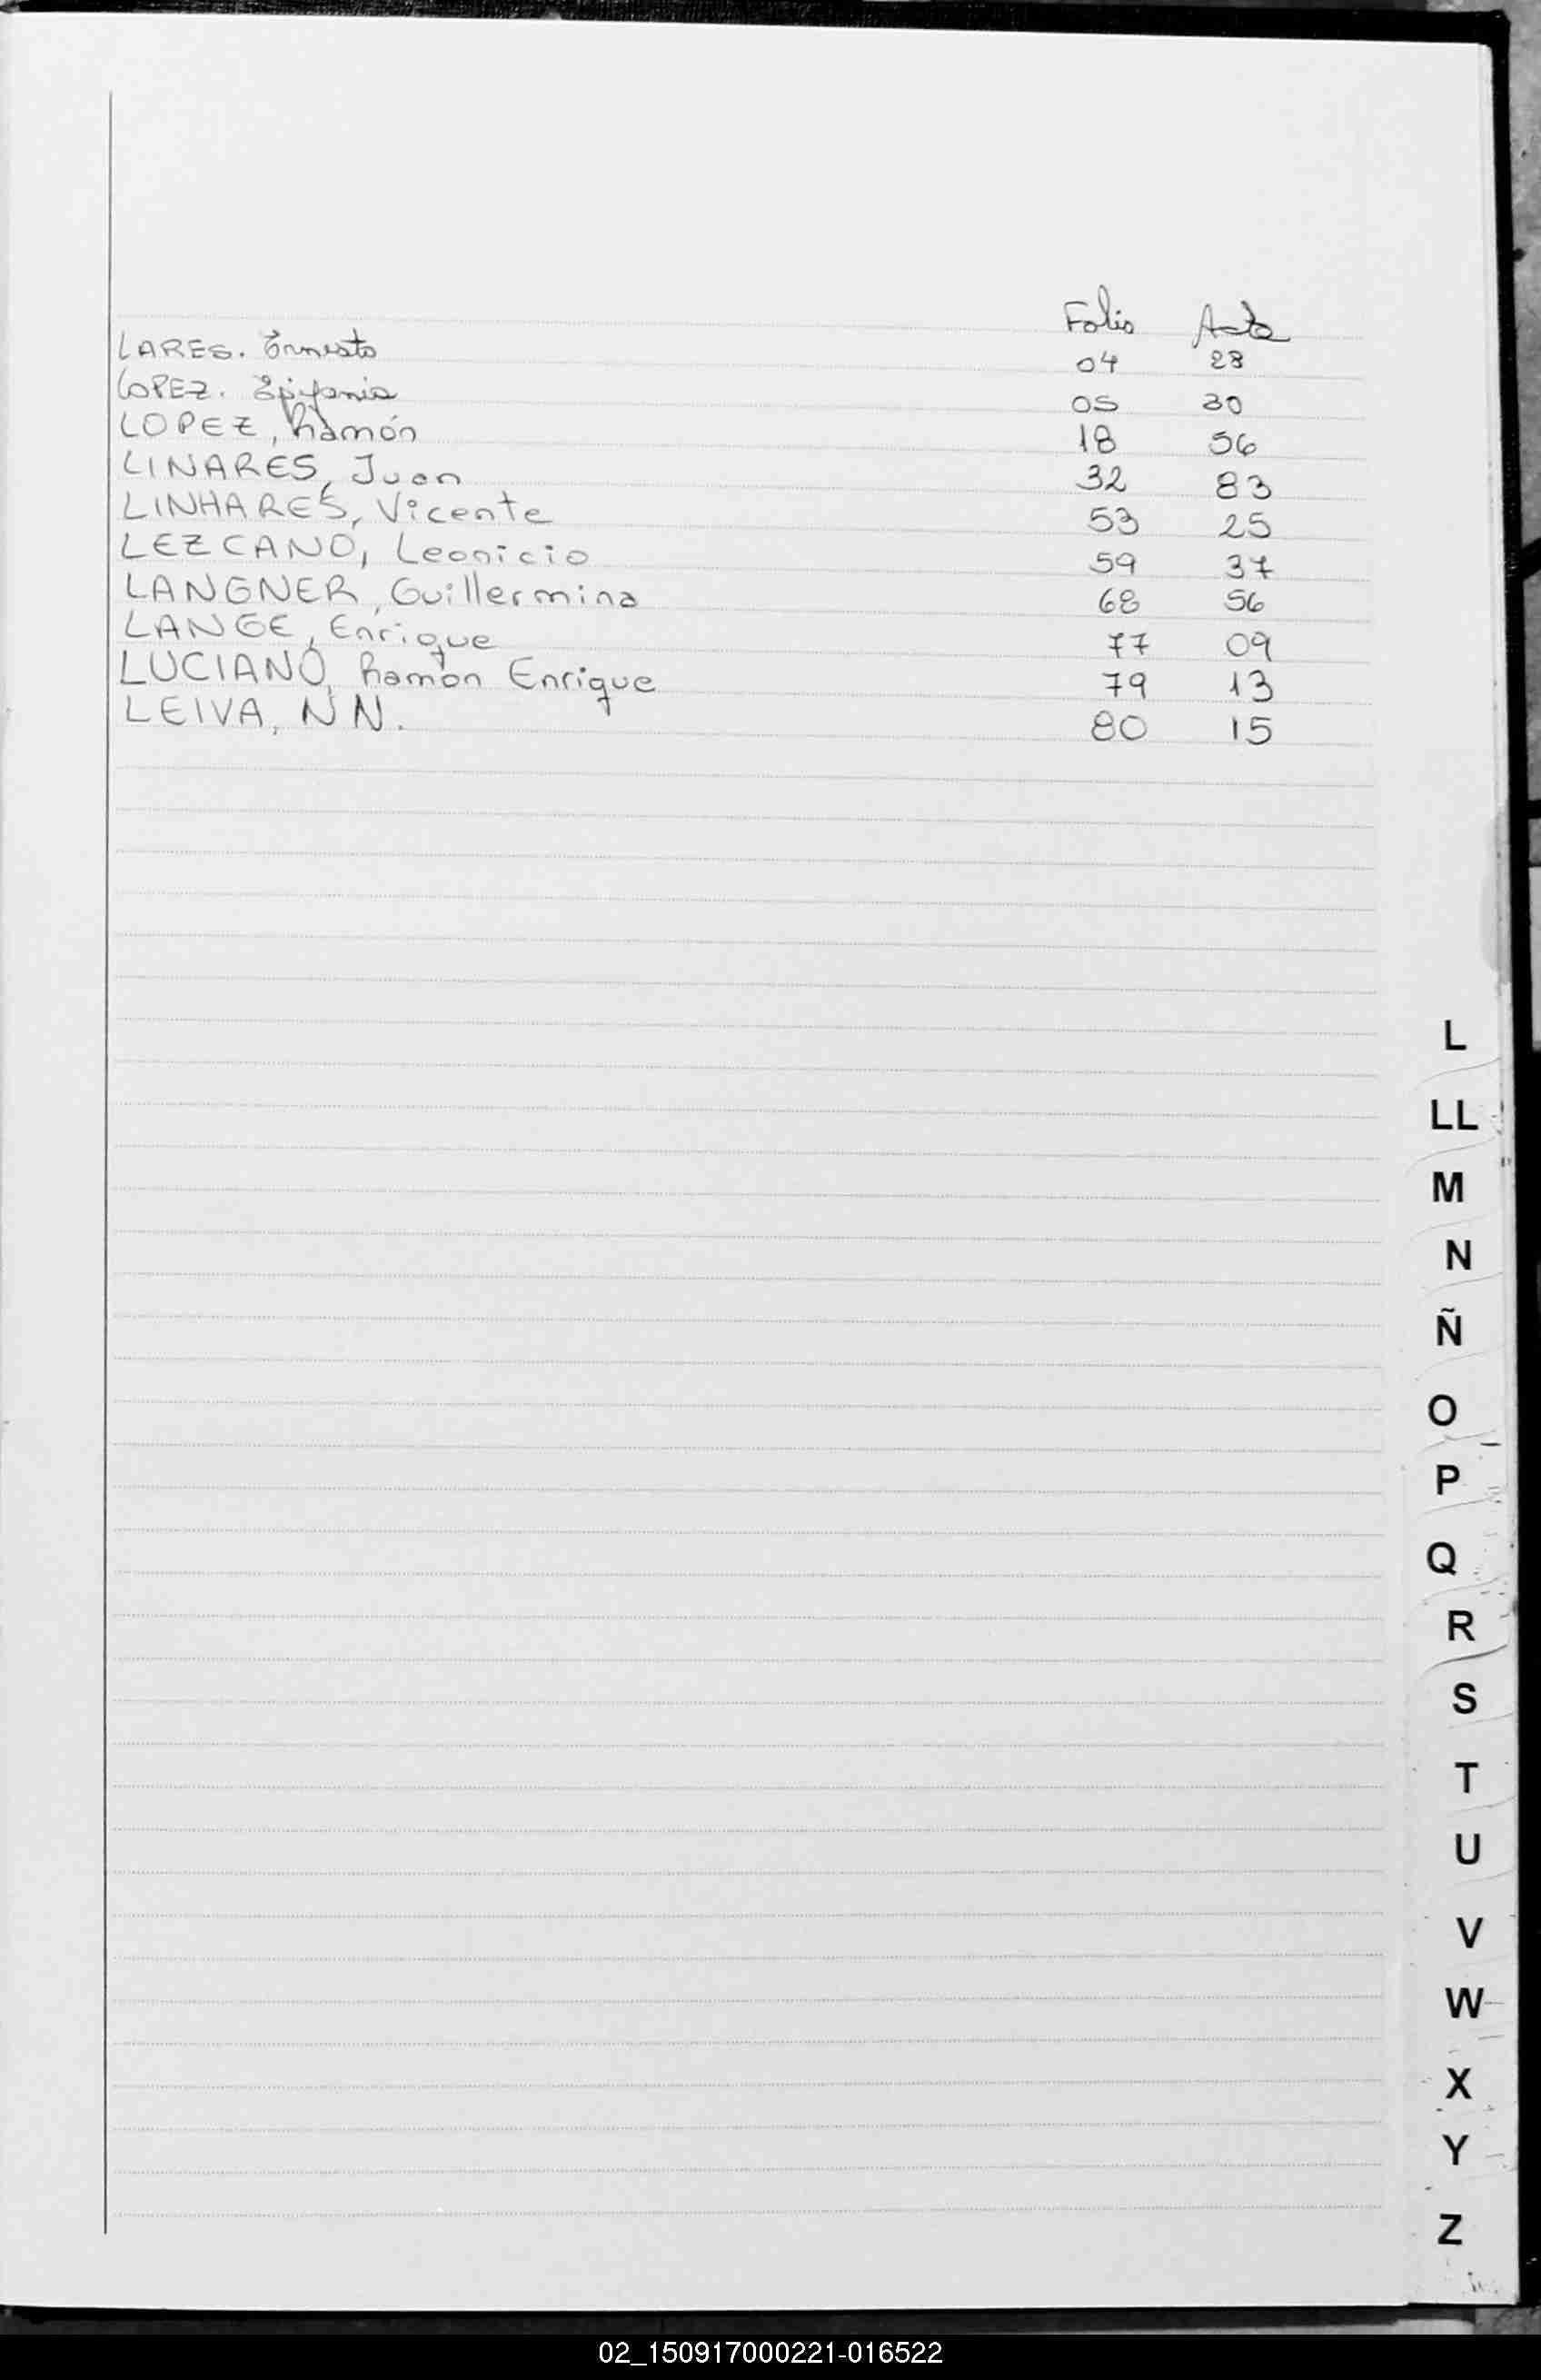 Folio Acta
LARES. Ernesto 04 28
LOPEZ. Epifania 05 30
LOPEZ, Ramón 18 56
LINARES, Juan 32 83
LINHARES, Vicente 53 25
LEZCANO, Leonicio 59 37
LANGNER, Guillermina 68 56
LANGE, Enrique 77 09
LUCIANO, Ramón Enrique 79 13
LEIVA, NN. 80 15
L
LL
M
N
Ñ
O
P
Q
R
S
T
U
V
W
X
Y
Z
02_150917000221-016522